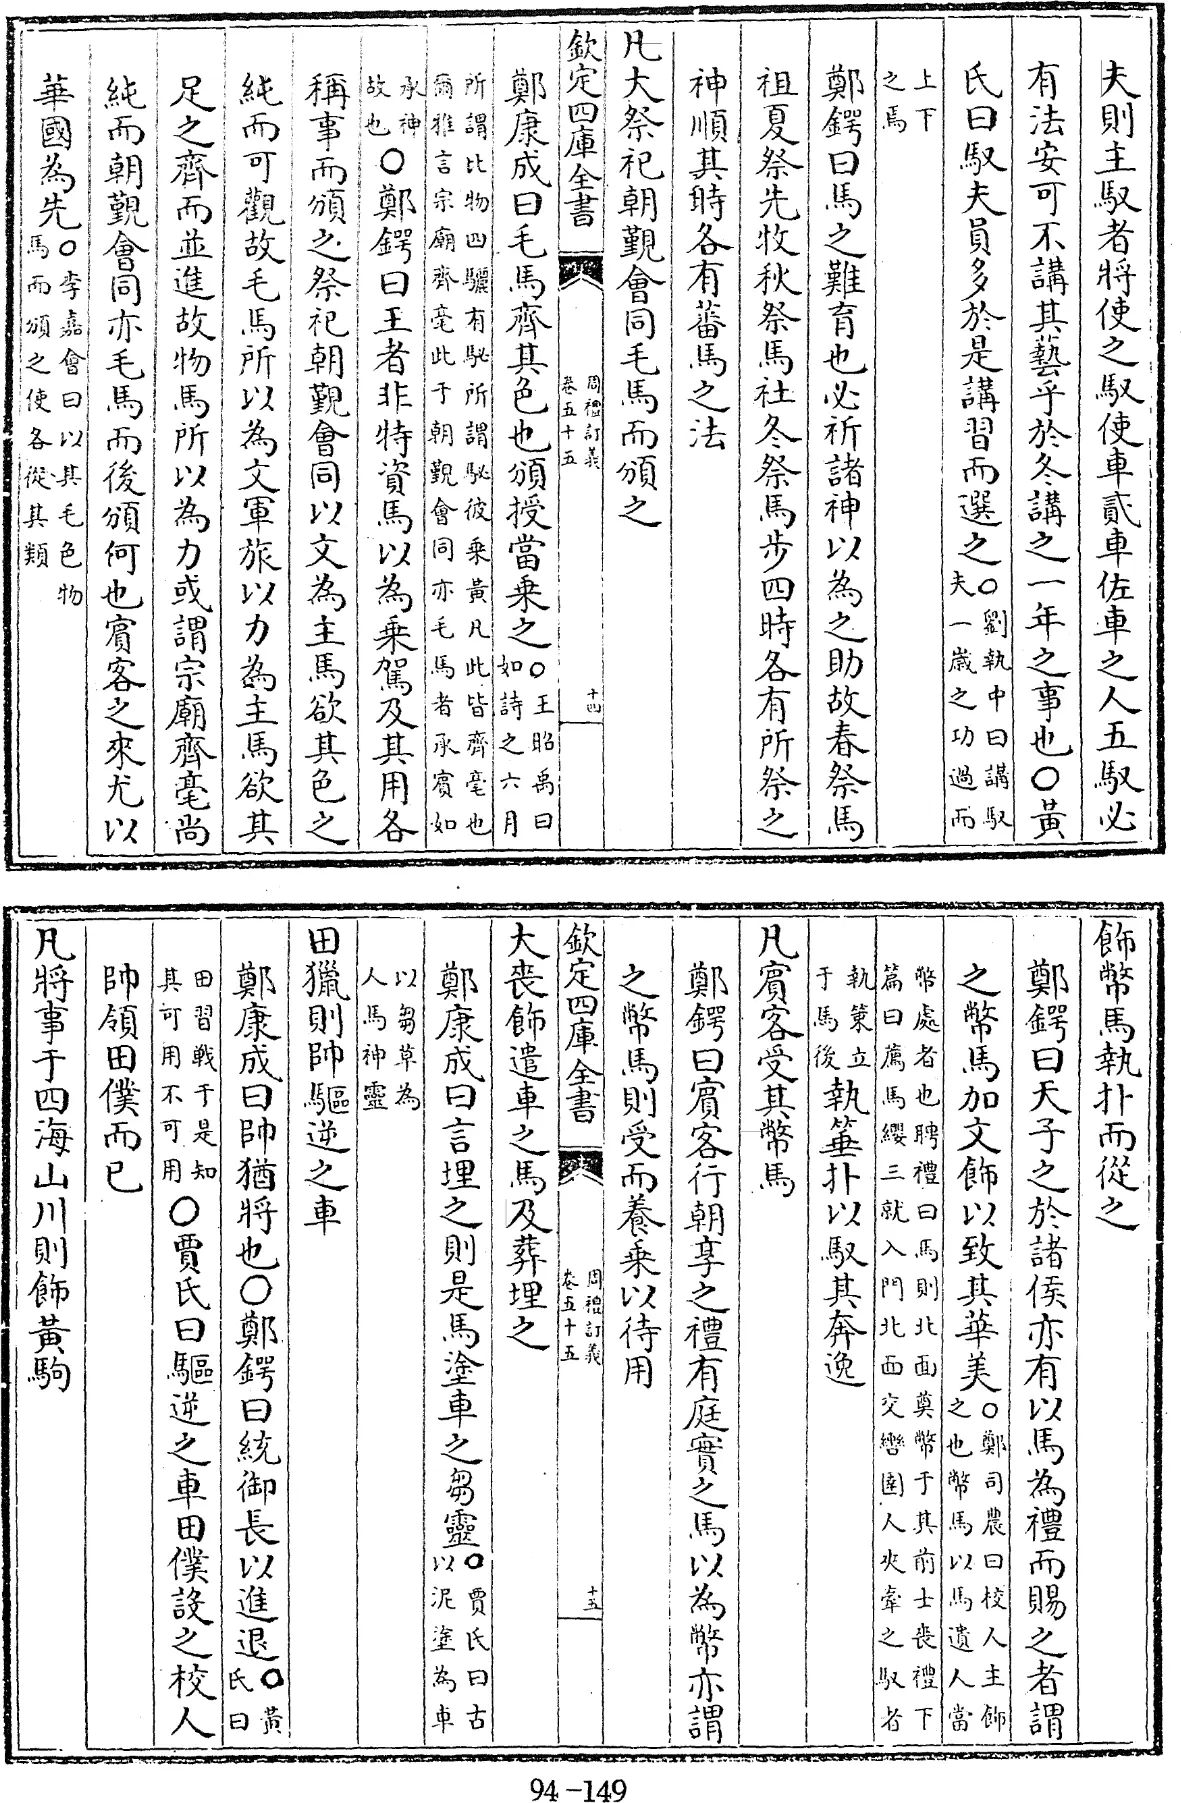 夫則主馭者將使之馭使車貳車佐車之人五馭必
有法安可不講其藝乎於冬講之一年之事也○黃
氏曰馭夫員多於是講習而選之○劉執中曰講馭夫一歲之功過而
上下之焉
鄭鍔曰馬之難育也必祈諸神以為之助故春祭馬
祖夏祭先牧秋祭馬社冬祭馬步四時各有所祭之
神順其時各有蕃馬之法
凡大祭祀朝覲會同毛馬而頒之
欽定四庫全書 周禮訂義卷五十五 十四
鄭康成曰毛馬齊其色也頒授當乘之○王昭禹曰如詩之六月
所謂比物四驪有駜所謂駜彼乘黃凡此皆齊毫也爾雅言宗廟齊毫此于朝覲會同亦毛馬者承賓如
承神故也○鄭鍔曰王者非特資馬以為乘駕及其用各
稱事而頒之祭祀朝覲會同以文為主馬欲其色之
純而可觀故毛馬所以為文軍旅以力為主馬欲其
足之齊而並進故物馬所以為力或謂宗廟齊毫尚
純而朝覲會同亦毛馬而後頒何也賓客之來尤以
華國為先○李嘉會曰以其毛色物馬而頒之使各從其類
飾幣馬執扑而從之
鄭鍔曰天子之於諸侯亦有以馬為禮而賜之者謂
之幣馬加文飾以致其華美○鄭司農曰校人主飾之也幣馬以馬遺人當
幣處者也聘禮曰馬則北面奠幣于其前士喪禮下篇曰薦馬纓三就入門北面交轡圉人夾牽之馭者
執策立于馬後執箠扑以馭其奔逸
凡賓客受其幣馬
鄭鍔曰賓客行朝享之禮有庭實之馬以為幣亦謂
之幣馬則受而養乘以待用
欽定四庫全書 周禮訂義卷五十五 十五
大喪飾遣車之馬及葬埋之
鄭康成曰言埋之則是馬塗車之芻靈○賈氏曰古以泥塗為車
以芻草為人馬神靈
田獵則帥驅逆之車
鄭康成曰帥猶將也○鄭鍔曰統御長以進退○黃氏曰
田習戰于是知其可用不可用○賈氏曰驅逆之車田僕設之校人
帥領田僕而已
凡將事于四海山川則飾黃駒
94-149